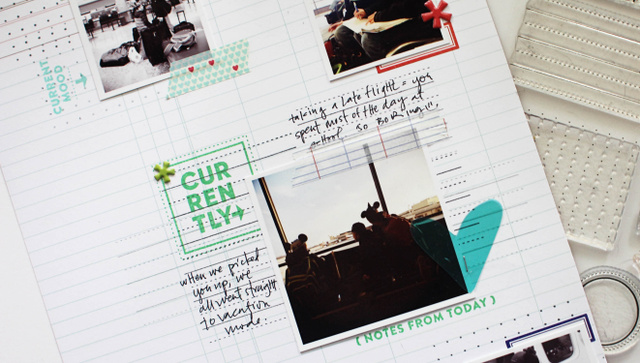 CURRENT
MOOD
taking a late flight = you
spent most of the day at
school so BORing!!!,
CUR
REN
TLY
when we picked
you up, we
all went straight
to vacation
mode.
( NOTES FROM TODAY )